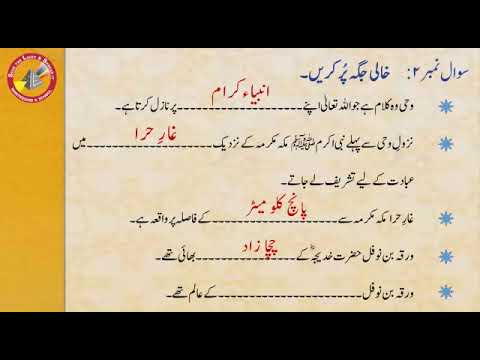 سوال نمبر ۲: خالی جگہ پُر کریں۔
وحی وہ کلام ہے جو اللہ تعالیٰ اپنے انبیاء کرام پر نازل کرتا ہے۔
نزولِ وحی سے پہلے نبی اکرم ﷺ مکہ مکرمہ کے نزدیک غارِ حرا میں
عبادت کے لیے تشریف لے جاتے۔
غارِ حرا مکہ مکرمہ سے پانچ کلو میٹر کے فاصلہ پر واقعہ ہے۔
ورقہ بن نوفل حضرت خدیجہؓ کے چچا زاد بھائی تھے۔
ورقہ بن نوفل ____________________ کے عالم تھے۔